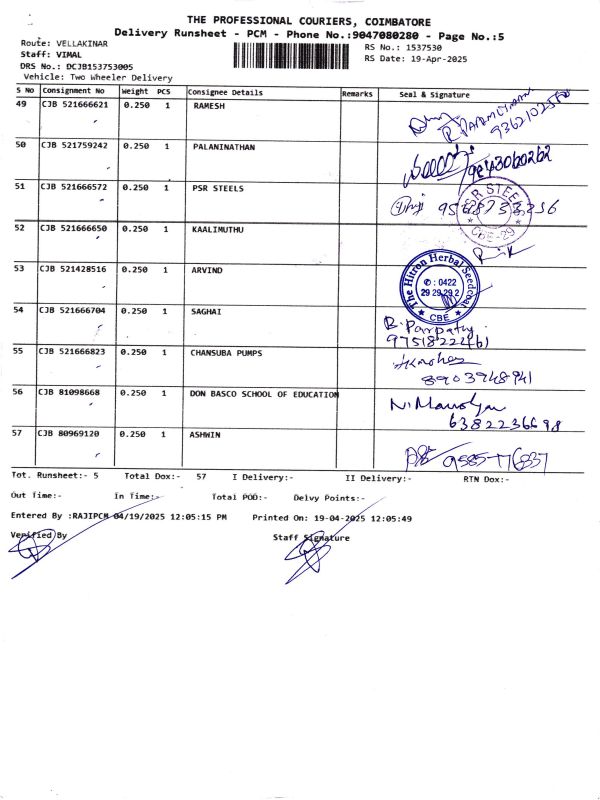 THE PROFESSIONAL COURIERS, COIMBATORE
Delivery Runsheet - PCM - Phone No.:9047080280 - Page No.:5
Route: VELLAKINAR
Staff: VIMAL
DRS No.: DCJB153753005
Vehicle: Two Wheeler Delivery
RS No.: 1537530
RS Date: 19-Apr-2025
S No Consignment No Weight PCS Consignee Details Remarks Seal & Signature
49 CJB 521666621 0.250 1 RAMESH
50 CJB 521759242 0.250 1 PALANINATHAN
9843060262
51 CJB 521666572 0.250 1 PSR STEELS
R STEEL
CBE-29
52 CJB 521666650 0.250 1 KAALIMUTHU
53 CJB 521428516 0.250 1 ARVIND
The Hitron Herbal Seedcoat
✆ : 0422
29 29 29 2
CBE
54 CJB 521666704 0.250 1 SAGHAI
B. Parpathy
9751822461
55 CJB 521666823 0.250 1 CHANSUBA PUMPS
8903948941
56 CJB 81098668 0.250 1 DON BASCO SCHOOL OF EDUCATION
6382236698
57 CJB 80969120 0.250 1 ASHWIN
9585-776837
Tot. Runsheet:- 5 Total Dox:- 57 I Delivery:- II Delivery:- RTN Dox:-
Out Time:- In Time:- Total POD:- Delvy Points:-
Entered By :RAJIPCM 04/19/2025 12:05:15 PM Printed On: 19-04-2025 12:05:49
Verified By Staff Signature